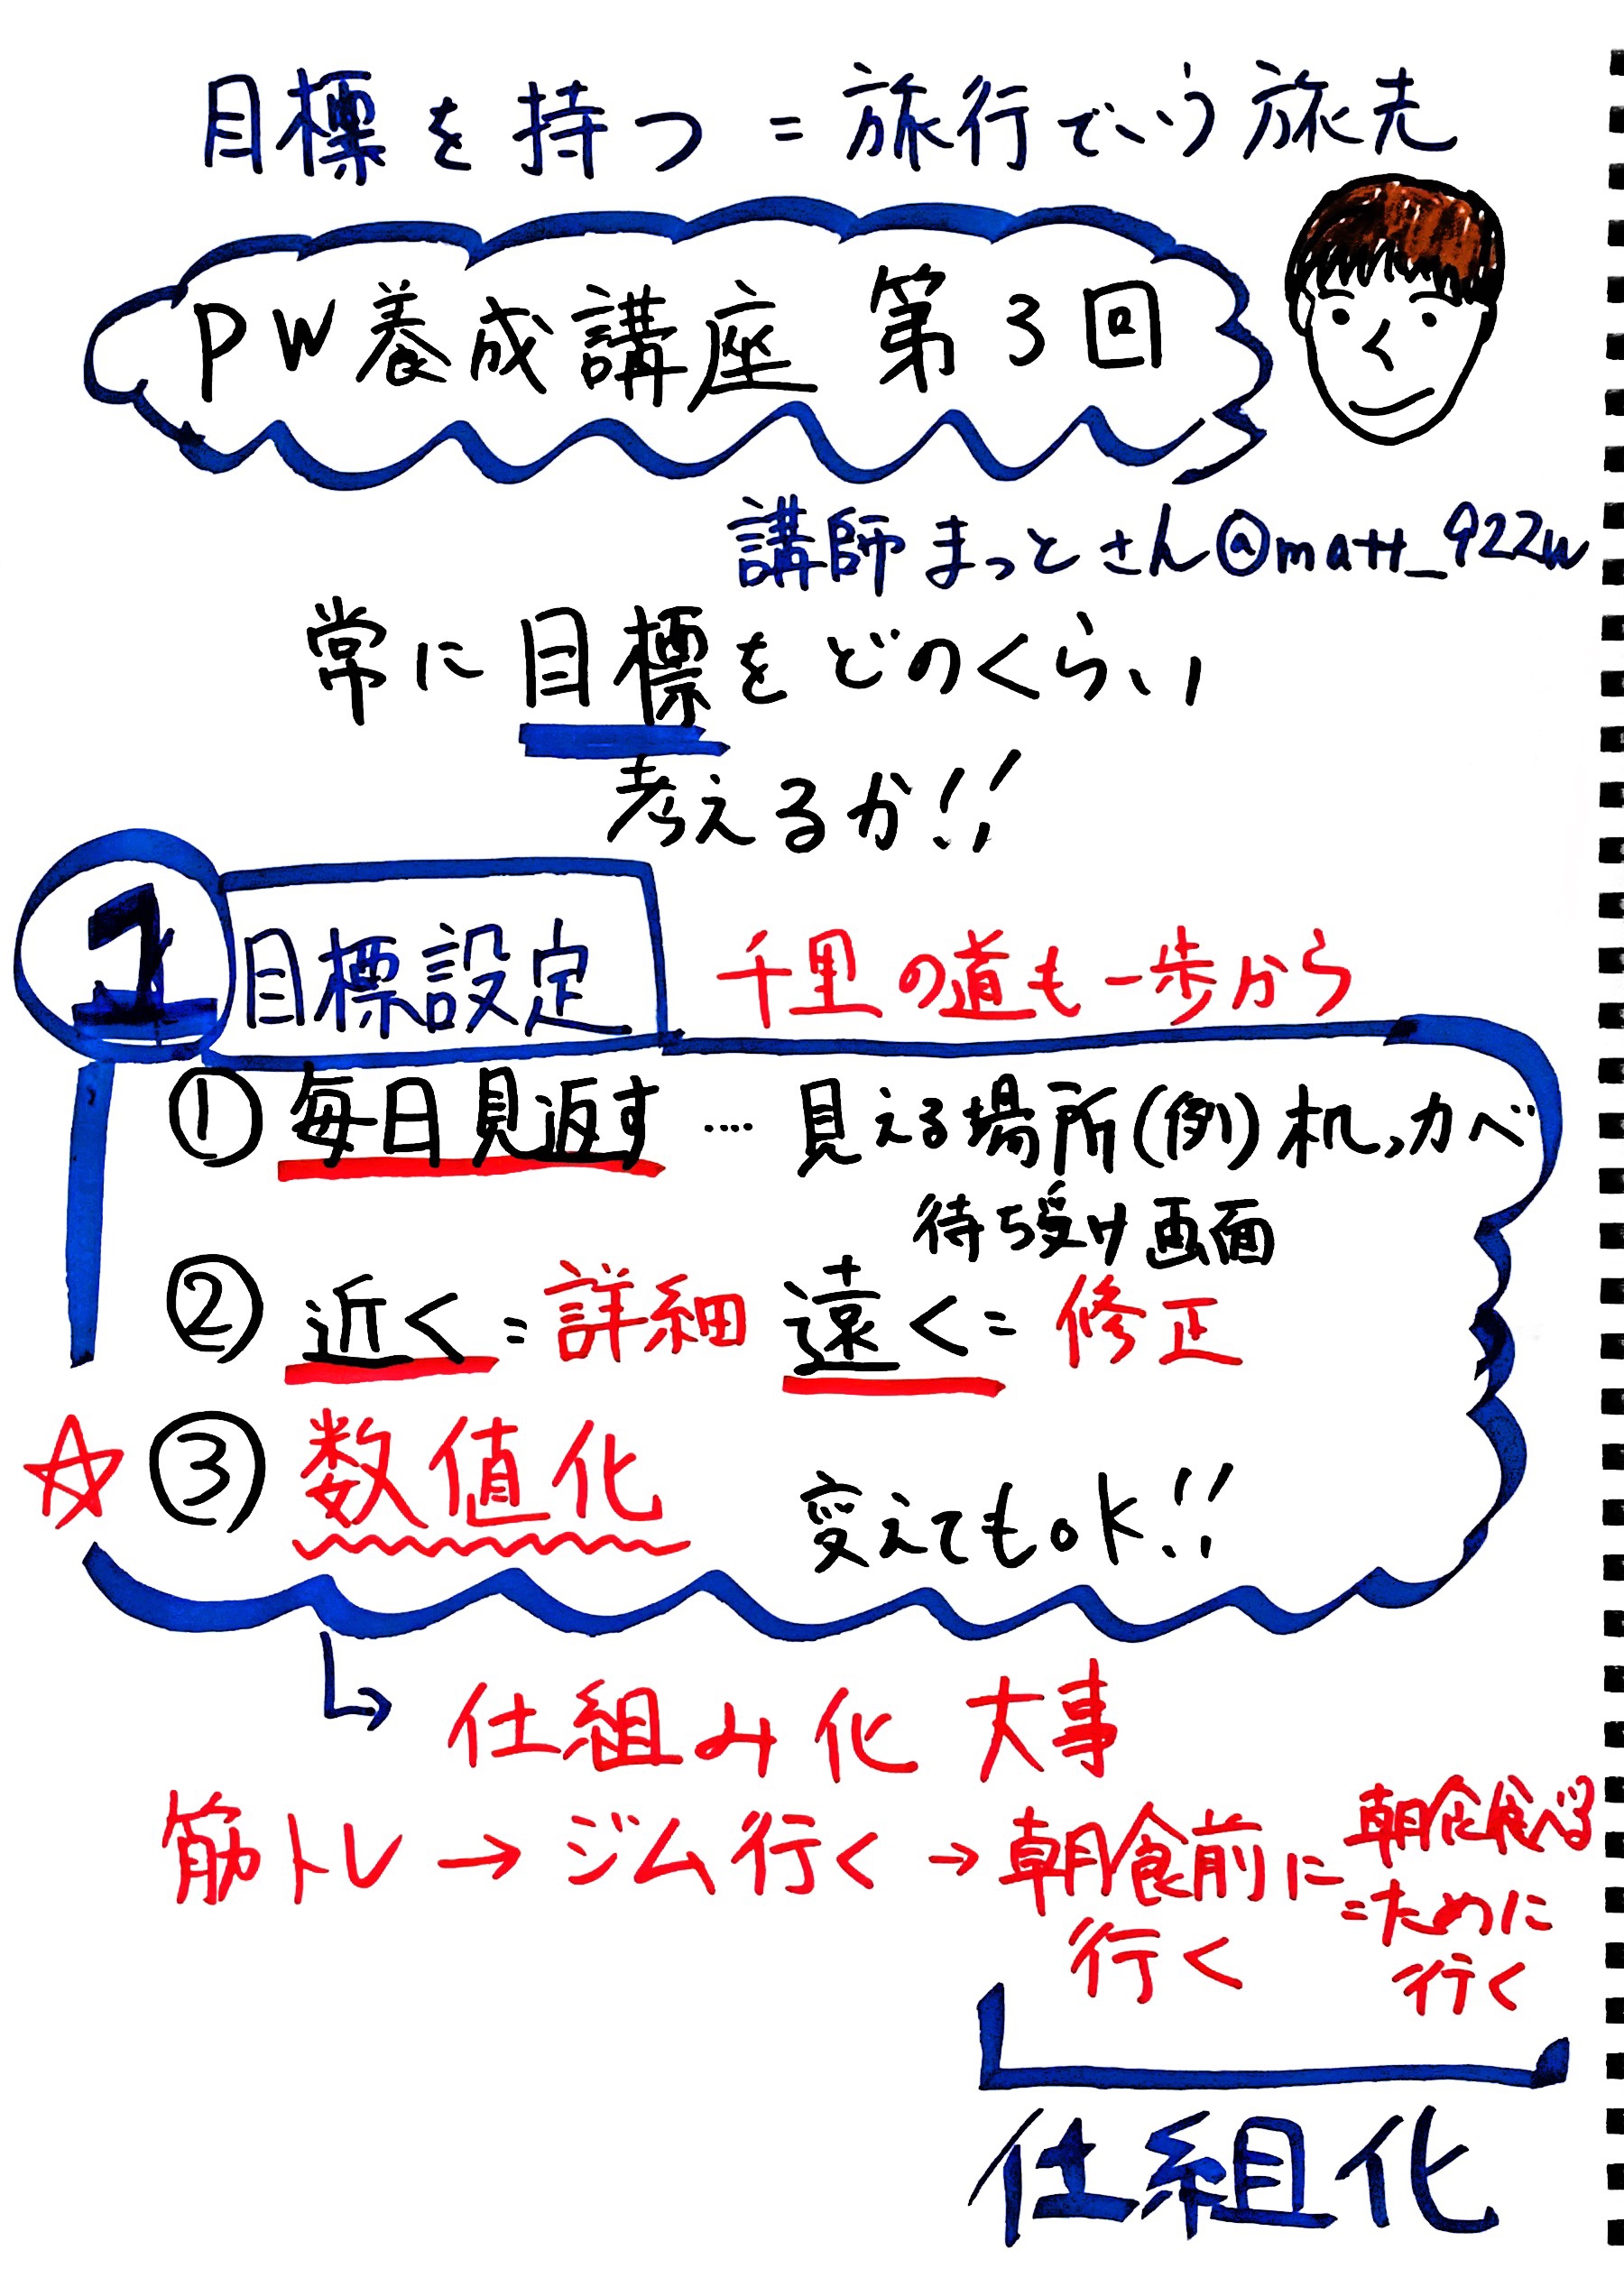 目標を持つ = 旅行でいう旅先
PW養成講座 第3回
講師 まっとさん@matt_922w
常に目標をどのくらい
考えるか!!
1 目標設定 千里の道も一歩から
① 毎日見返す …. 見える場所(例)机、カベ
待ち受け画面
② 近く = 詳細 遠く = 修正
☆ ③ 数値化 変えてもOK!!
↳ 仕組み化 大事
筋トレ → ジム行く → 朝食前に行く
= 朝食食べるために行く
仕組化